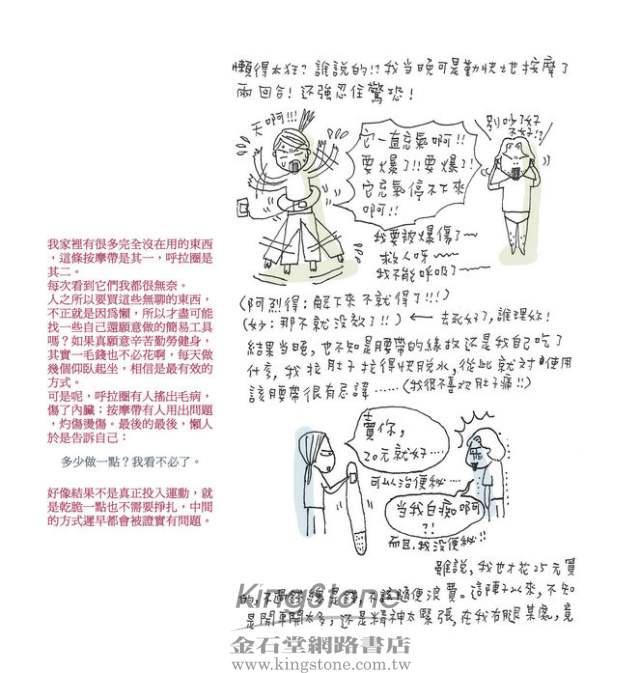 懶得太狂？誰說的!!我当晚可是勤快地按摩了
兩回合！还強忍住驚恐！
天啊!!!
它一直充氣啊!!
要爆了!!要爆了!
它充氣停不下來
啊!!
別吵了好
不好!?
我要被爆傷了～
救人呀～～
我不能呼吸了～～
(阿烈得：解下來不就得了!!)
(妙：那不就沒效了!!) ← 去死好了,誰理妳!
結果当晚，也不知是腰帶的緣故还是我自己吃了
什麼，我拉肚子拉得快脫水，從此就対使用
該腰帶很有忌諱……(我很不喜欢肚子痛!!)
賣你，
20元就好…
可以治便秘…
当我白痴啊
?!
而且,我没便秘!!
雖說，我也才花25元買
的，不
浪費。這陣子以來，不知
是開車開太多，还是精神太緊張，在我右腿某處，竟
我家裡有很多完全沒在用的東西
，這條按摩帶是其一，呼拉圈是
其二。
每次看到它們我都很無奈。
人之所以要買這些無聊的東西，
不正就是因為懶，所以才盡可能
找一些自己還願意做的簡易工具
嗎？如果真願意辛苦勤勞健身，
其實一毛錢也不必花啊，每天做
幾個仰臥起坐，相信是最有效的
方式。
可是呢，呼拉圈有人搖出毛病，
傷了內臟；按摩帶有人用出問題
，灼傷燙傷。最後的最後，懶人
於是告訴自己：
多少做一點？我看不必了。
好像結果不是真正投入運動，就
是乾脆一點也不需要掙扎，中間
的方式遲早都會被證實有問題。
KingStone
金石堂網路書店
www.kingstone.com.tw